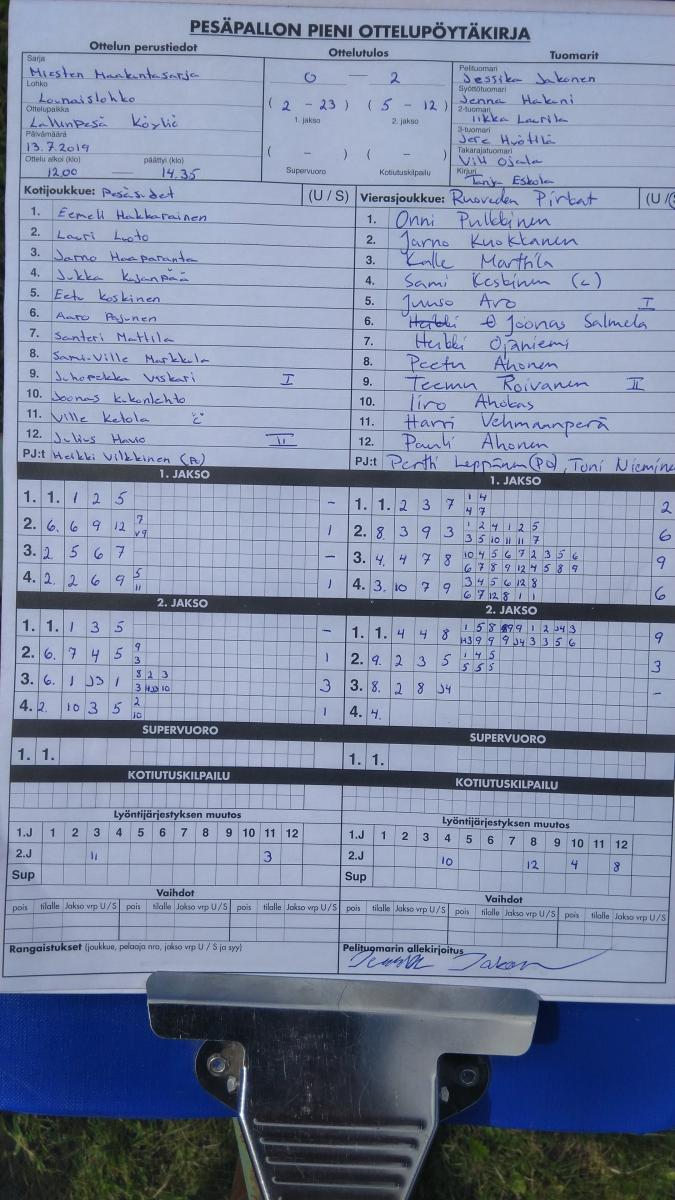 PESÄPALLON PIENI OTTELUPÖYTÄKIRJA
Ottelun perustiedot
Ottelutulos
Tuomarit
Sarja
Miesten Maakuntasarja
Lohko
Lounaislohko
Ottelupaikka
Lallinpesä Köyliö
Päivämäärä
13.7.2019
Ottelu alkoi (klo) päättyi (klo)
1200 — 14.35
0 — 2
( 2 - 23 ) ( 5 - 12 )
1. jakso 2. jakso
( - ) ( - )
Supervuoro Kotiutuskilpailu
Pelituomari
Jessika Jakonen
Syöttötuomari
Jenna Hakani
2-tuomari
Iikka Laurila
3-tuomari
Jere Huottila
Takarajatuomari
Vili Ojala
Kirjuri
Tanja Eskola
Kotijoukkue: (U / S)
1. Eemeli Hakkarainen
2. Lauri Luoto
3. Jarno Haaparanta
4. Jukka Kujanpää
5. Eetu Koskinen
6. Aaro Pajunen
7. Santeri Mattila
8. Sami-Ville Markkula
9. Juhopekka Viskari I
10. Joonas Kokonlehto
11. Ville Ketola
12. Julius II
PJ:t Heikki Vilkkinen
Vierasjoukkue: Ruoveden Pirkat (U /
1. Onni Pulkkinen
2. Jarno Kuokkanen
3. Kalle Marttila
4. Sami Keskinen (c)
5. Juuso Aro I
6. Joonas Salmela
7. Heikki Ojaniemi
8. Peetu Ahonen
9. Teemu Roivanen II
10. Iiro Ahokas
11. Harri Vehmaanperä
12. Pauli Ahonen
PJ:t Pertti Leppänen (PJ), Toni Niemine
1. JAKSO
1. 1. 1 2 5 -
2. 6. 6 9 12 7 1
v9
3. 2 5 6 7 -
4. 2. 2 6 9 5 1
11
2. JAKSO
1. 1. 1 3 5 -
2. 6. 7 4 5 9 1
3
3. 6. 1 J3 1 8 2 3 3
4. 2. 10 3 5 2 1
10
SUPERVUORO
1. 1.
KOTIUTUSKILPAILU
1. JAKSO
1. 1. 2 3 7 1 4 2
4 7
2. 8. 3 9 3 1 2 4 1 2 5 6
3 5 10 11 11 7
3. 4. 4 7 8 10 4 5 6 7 2 3 5 6 9
6 7 8 9 12 4 5 8 9
4. 3. 10 7 9 3 4 5 6 12 8 6
6 7 12 8 1 1
2. JAKSO
1. 1. 4 4 8 9
2. 9. 2 3 5 1 4 5 3
5 5 5
3. 8. 2 8 J4 -
4. 4.
SUPERVUORO
1. 1.
KOTIUTUSKILPAILU
Lyöntijärjestyksen muutos
1.J 1 2 3 4 5 6 7 8 9 10 11 12
2.J 11 3
Sup
Lyöntijärjestyksen muutos
1.J 1 2 3 4 5 6 7 8 9 10 11 12
2.J 10 12 4 8
Sup
Vaihdot
pois tilalle Jakso vrp U / S pois tilalle Jakso vrp U / S pois tilalle Jakso vrp U / S
Vaihdot
pois tilalle Jakso vrp U / S pois tilalle Jakso vrp U / S pois tilalle Jakso vrp U / S
Rangaistukset (joukkue, pelaaja nro, jakso vrp U / S ja syy)
Pelituomarin allekirjoitus